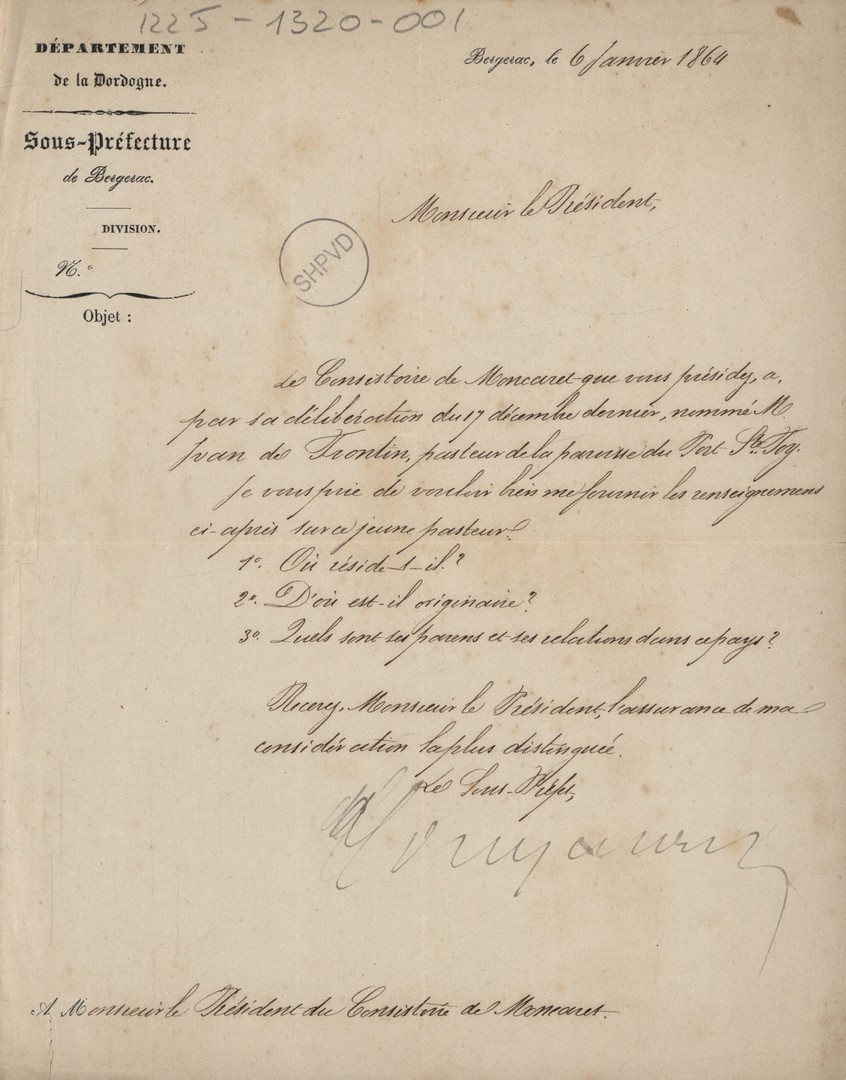 1225-1320-001
DÉPARTEMENT
de la Dordogne.
Sous-Préfecture
de Bergerac.
DIVISION.
N.°
Objet :
Bergerac, le 6 Janvier 1864
Monsieur le Président,
SHPVD
Le Consistoire de Moncaret que vous présidez, a,
par sa délibération du 17 décembre dernier, nommé M.
Jvan de Frontin, pasteur de la paroisse du Port Ste. Foy.
Je vous prie de vouloir bien me fournir les renseignemens
ci-après sur ce jeune pasteur.
1o. Où réside-t-il ?
2o. D'où est-il originaire ?
3o. Quels sont ses parens et ses relations dans ce pays ?
Recevez, Monsieur le Président, l'assurance de ma
considération la plus distinguée.
Le Sous-Préfet,
A Monsieur le Président du Consistoire de Moncaret.